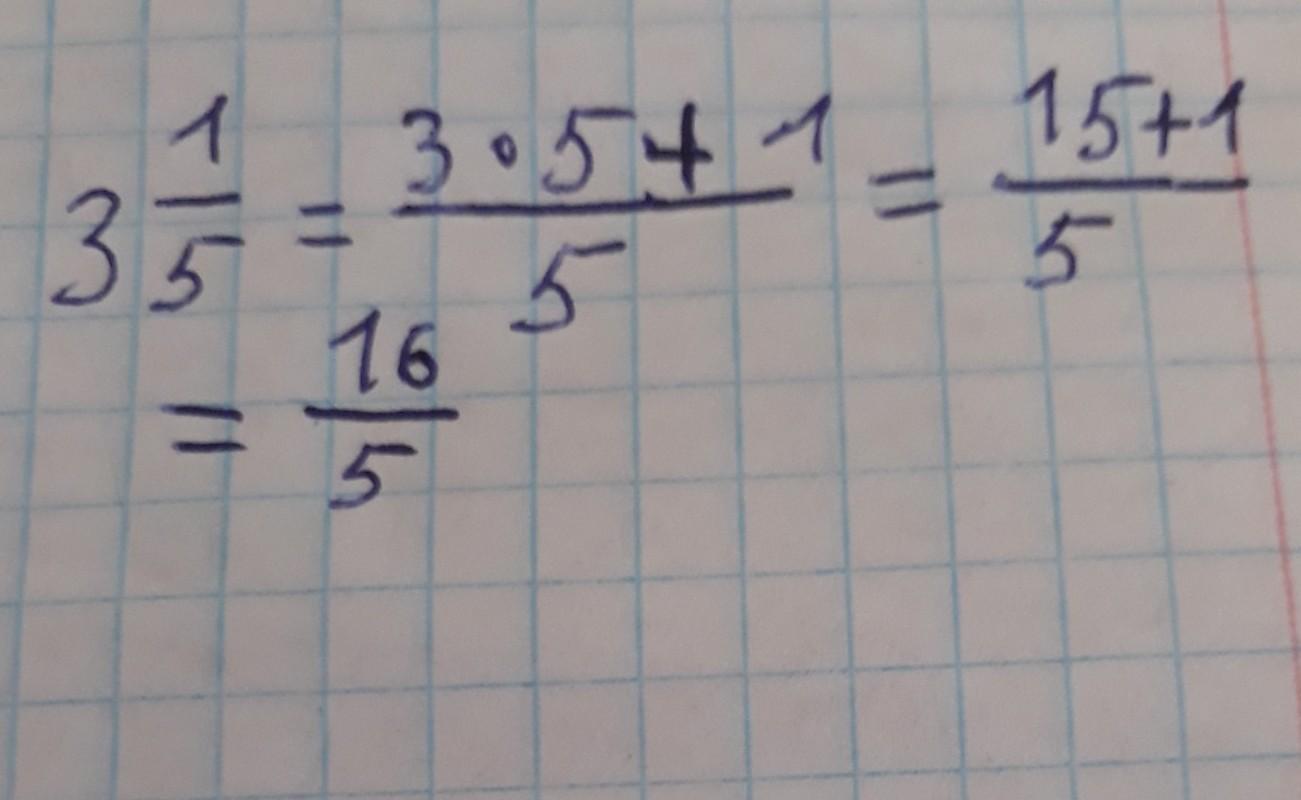 3 1/5 = (3 · 5 + 1)/5 = (15+1)/5
= 16/5